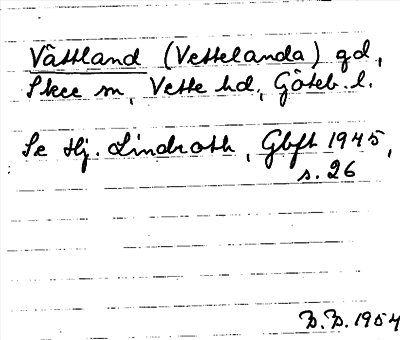 Vättland (Vettelanda) gd,
Skee sn, Vette hd, Göteb. l.
Se Hj. Lindroth, Gbft 1945,
s. 26
B.B. 1954